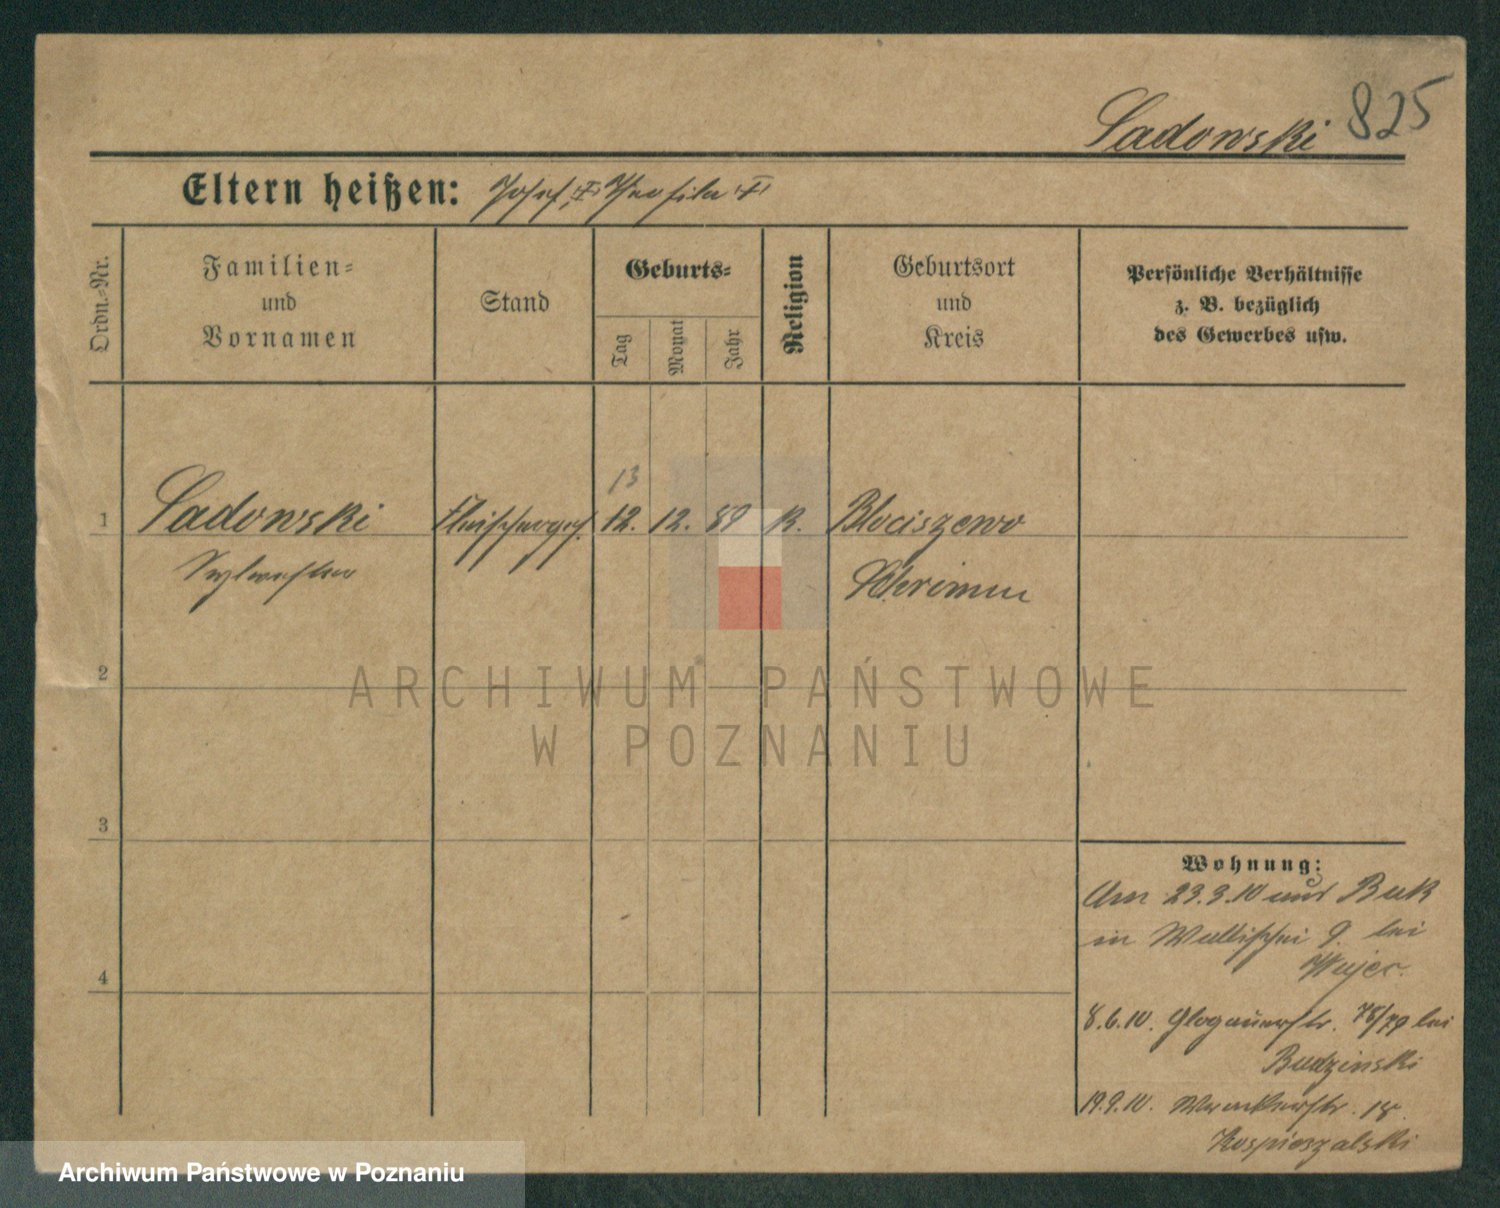 Sadowski 825
Eltern heißen: Josef, Theofila
Ordn.-Nr.
Familien-
und
Vornamen
Stand
Geburts-
Tag
Monat
Jahr
Religion
Geburtsort
und
Kreis
Persönliche Verhältnisse
z. B. bezüglich
des Gewerbes usw.
13
1 Sadowski Fleischerges. 12. 12. 89 K. Blociszewo
Sylvester Schrimm
2
ARCHIWUM PAŃSTWOWE
W POZNANIU
3
Wohnung:
Am 23.3.10 aus Buk
in Wallischei 9. bei
Wujec.
4
8.6.10. Glogauerstr. 78/79 bei
Budzinski
19.9.10. 18.
Kospieszalski
Archiwum Państwowe w Poznaniu